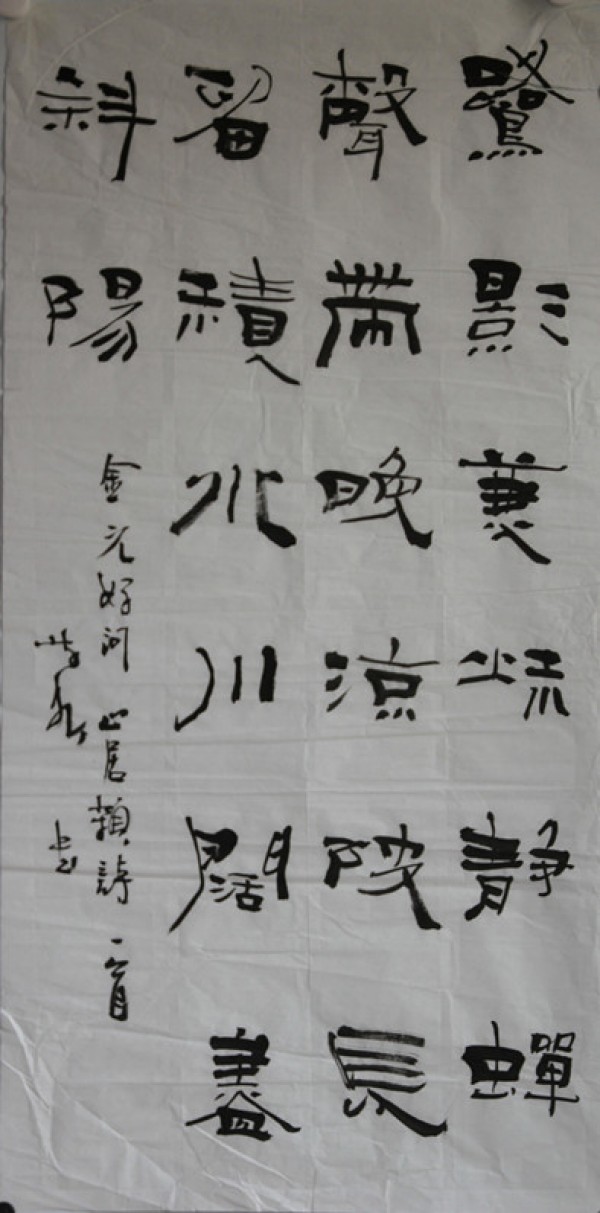 鷺影兼秌靜蟬
聲帶晚涼陂長
留積水川闊盡
斜陽
金元好問山居雜詩一首
書